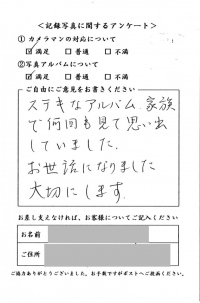 ＜記録写真に関するアンケート＞
① カメラマンの対応について
☑ 満足 □ 普通 □ 不満
② 写真アルバムについて
☑ 満足 □ 普通 □ 不満
ご自由にご意見をお書きください
ステキなアルバム、家族
で何回も見て思い出
していました。
お世話になりました
大切にします。
お差し支えなければ、お客様についてご記入ください
お名前
ご住所
ご協力ありがとうございました。お手数ですがポストへご投函ください。